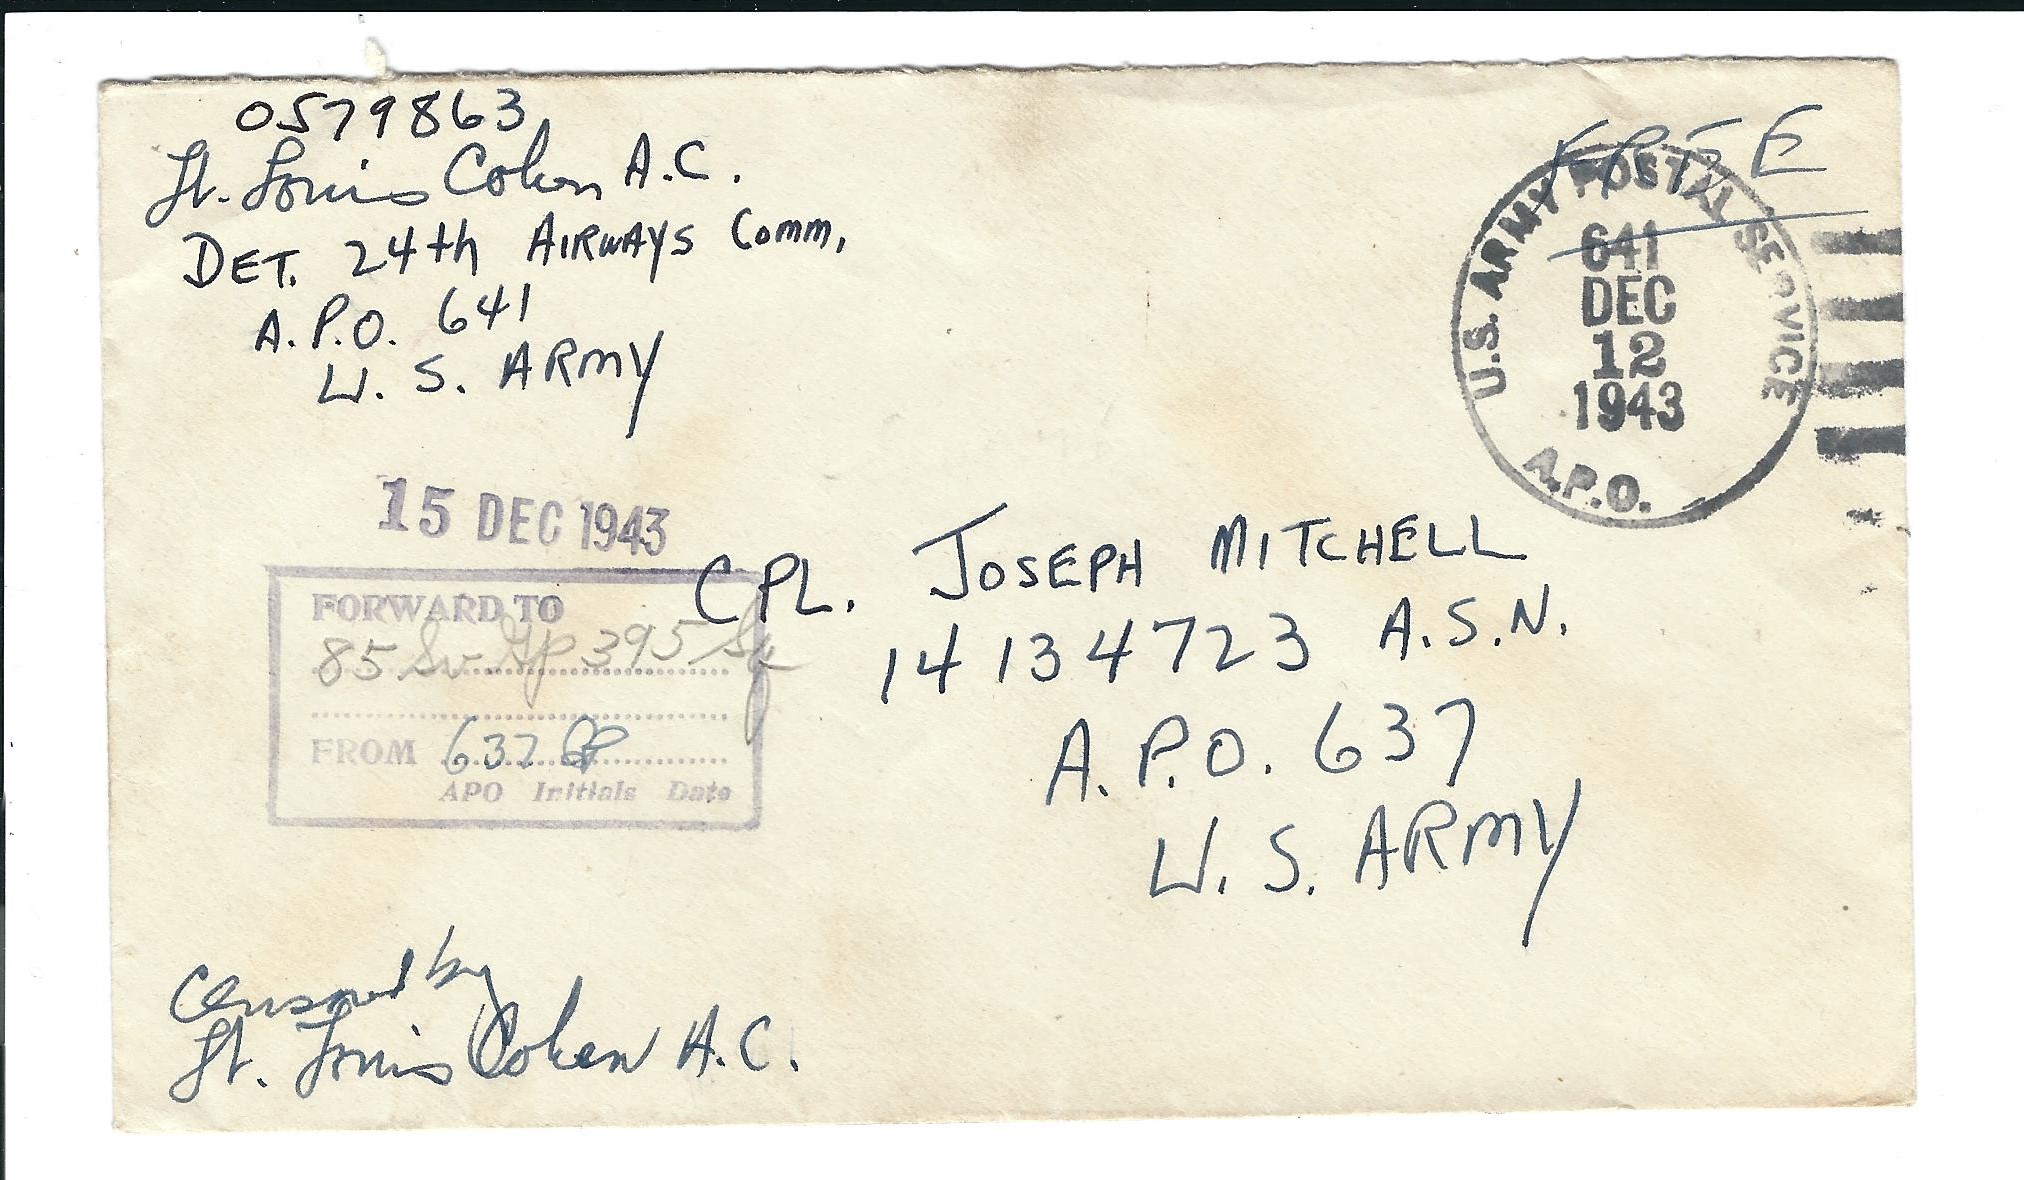 0579863
Lt. Louis Cohen A.C.
DET. 24th AIRWAYS Comm.
A.P.O. 641
U. S. ARMY
FREE
U.S. ARMY POSTAL SERVICE
641
DEC
12
1943
A.P.O.
15 DEC 1943
FORWARD TO
85 Sv Gp 395 Sq
FROM 637
APO Initials Date
CPL. JOSEPH MITCHELL
14134723 A.S.N.
A.P.O. 637
U. S. ARMY
Censored by
Lt. Louis Cohen A.C.